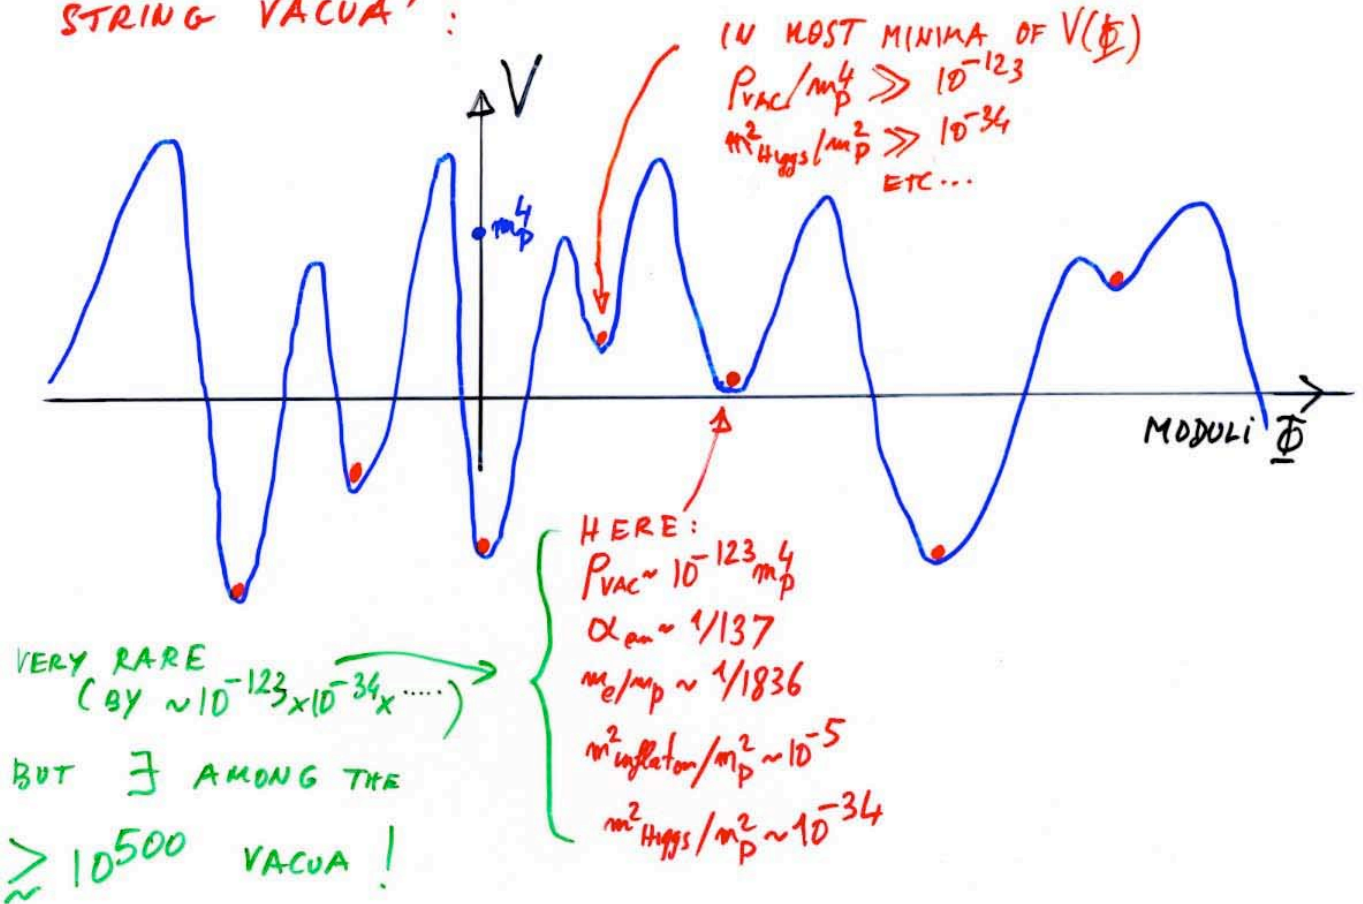 STRING VACUA' :
IN MOST MINIMA OF V(Φ)
ρVAC/m_p^4 ≫ 10^-123
m^2_Higgs/m_p^2 ≫ 10^-34
ETC...
V
m_p^4
MODULI Φ
HERE:
ρVAC ~ 10^-123 m_p^4
α_em ~ 1/137
m_e/m_p ~ 1/1836
m^2_inflaton/m_p^2 ~ 10^-5
m^2_Higgs/m_p^2 ~ 10^-34
VERY RARE
(BY ~10^-123 x 10^-34 x .....)
BUT ∃ AMONG THE
≳ 10^500 VACUA !